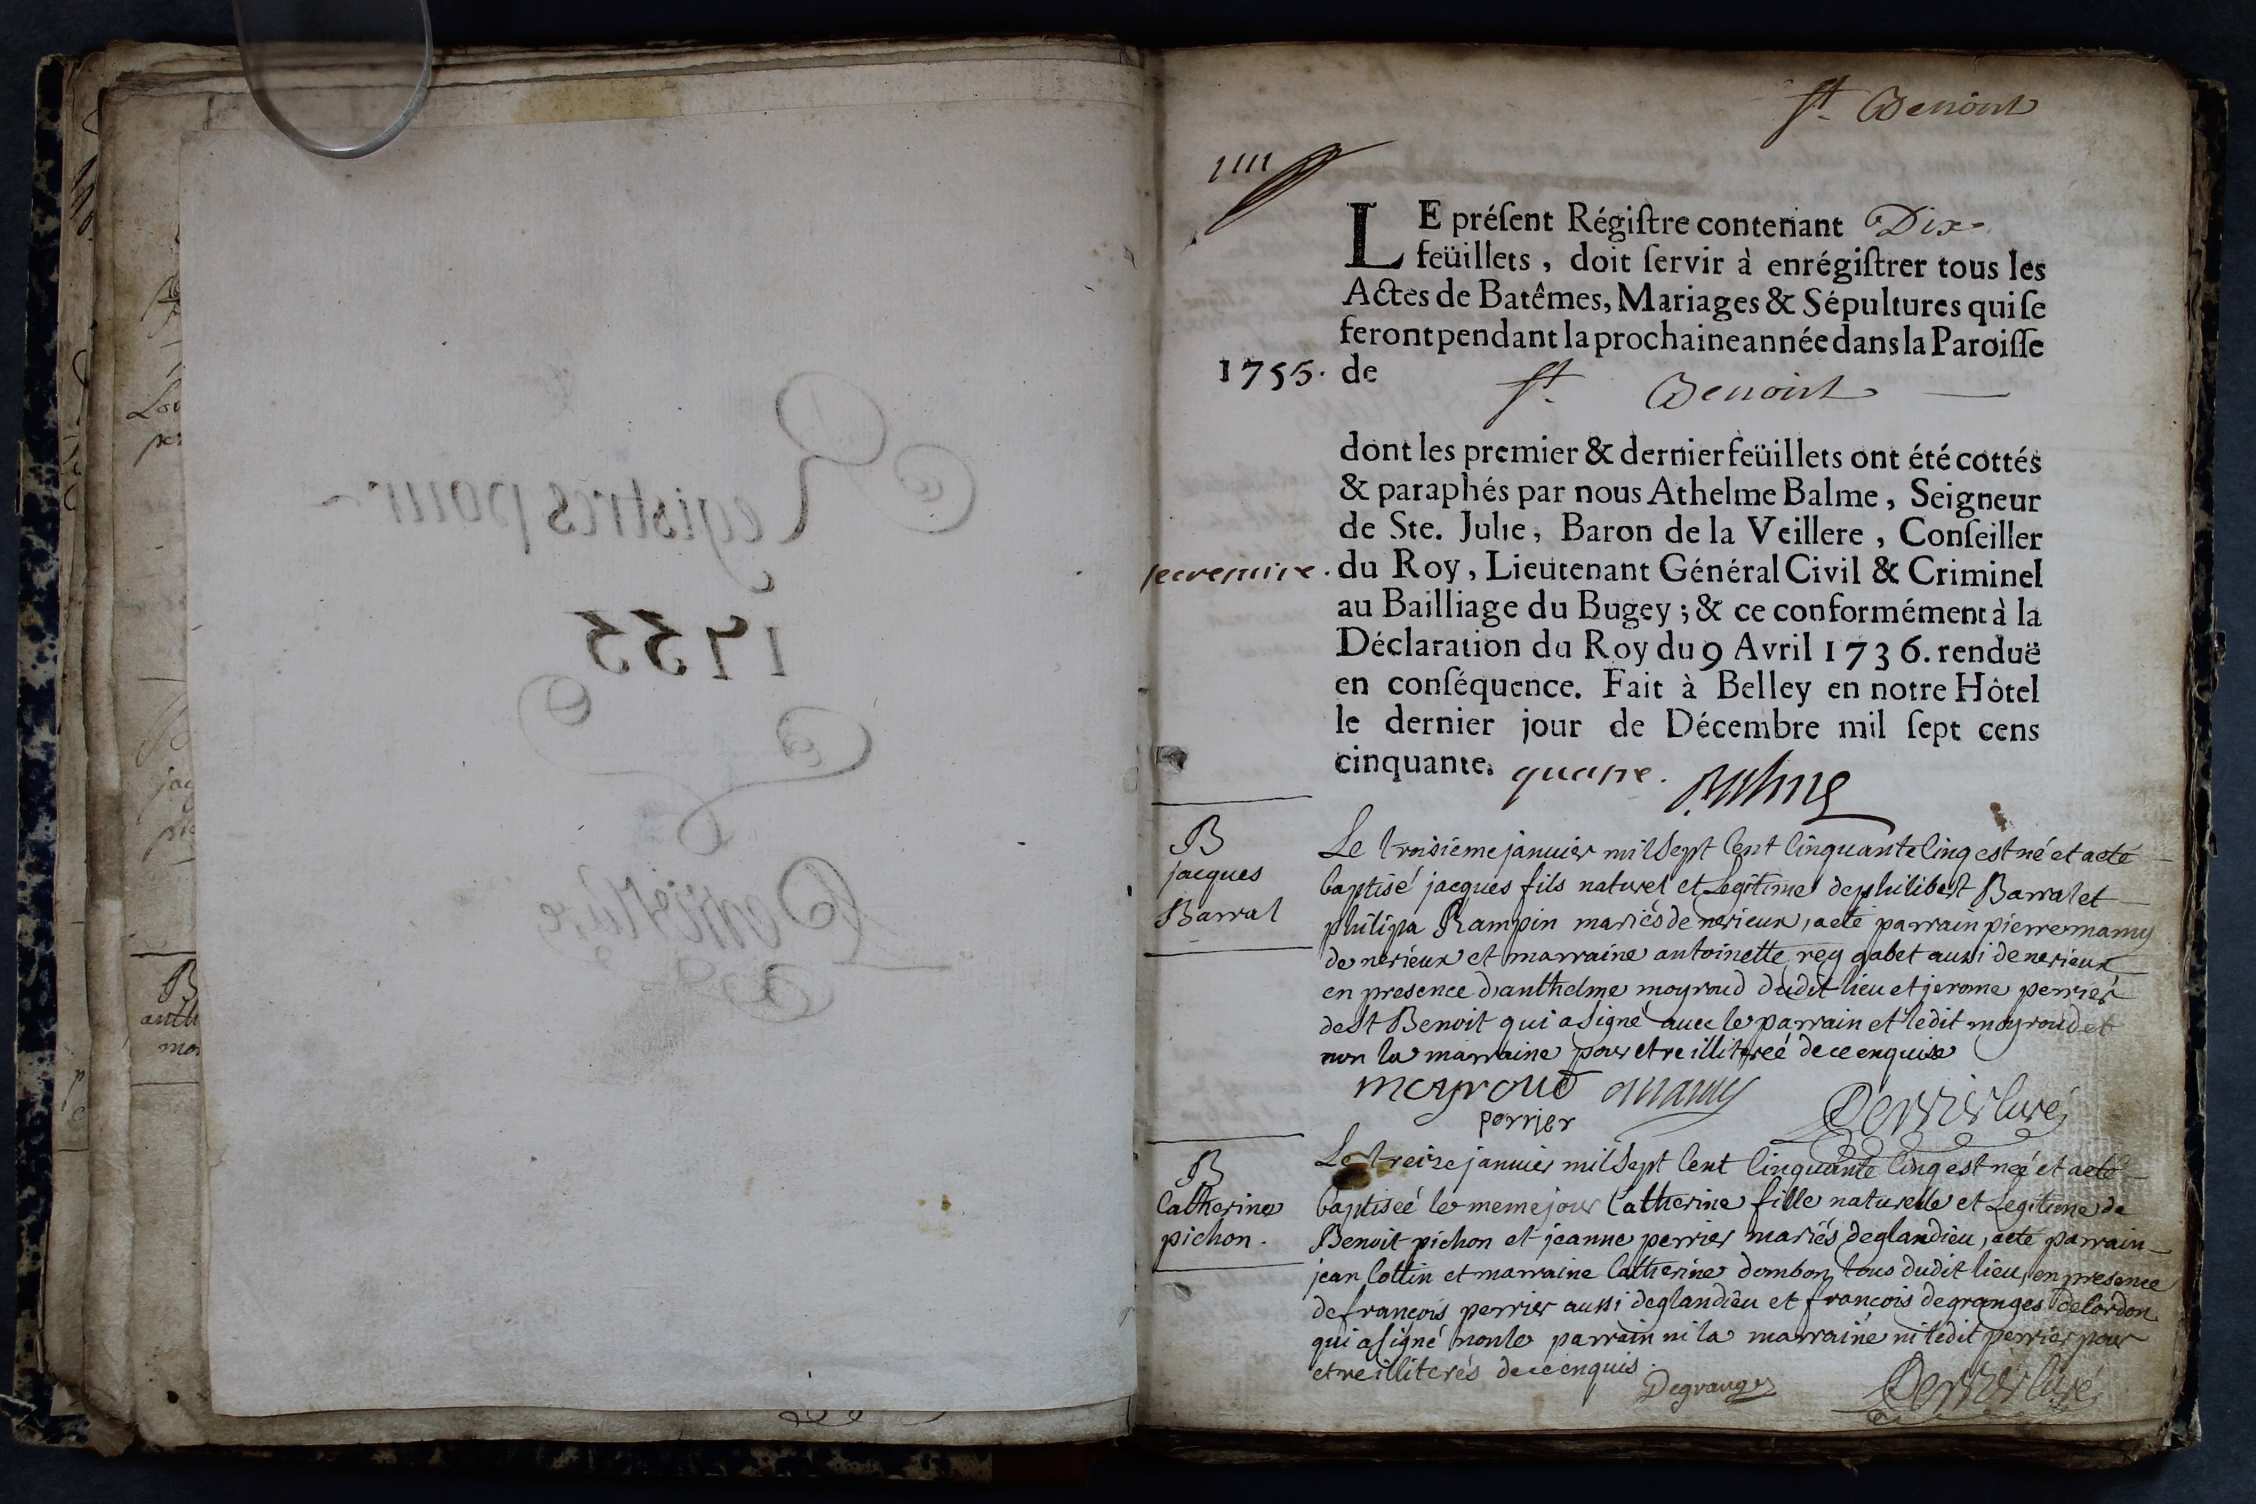 Registres pour
1755
St Benoist
1111
LE préſent Régiſtre contenant Dix
feüillets, doit ſervir à enrégiſtrer tous les
Actes de Batêmes, Mariages & Sépultures qui ſe
feront pendant la prochaine année dans la Paroiſſe
1755. de
St Benoist
dont les premier & dernier feüillets ont été cottés
& paraphés par nous Athelme Balme, Seigneur
de Ste. Julie, Baron de la Veillere, Conſeiller
du Roy, Lieutenant Général Civil & Criminel
au Bailliage du Bugey; & ce conformément à la
Déclaration du Roy du 9 Avril 1736. renduë
en conſéquence. Fait à Belley en notre Hôtel
le dernier jour de Décembre mil ſept cens
cinquante. quatre. Balme
B
jacques
Barral
Le troisieme janvier mil Sept Cent Cinquante Cinq est né et a eté
baptisé jacques fils naturel et Legitime de philibert Barral et
philipa Rampin mariés de nerieux, a eté parrain pierre mamy
de nerieux et marraine antoinette rey gabet aussi de nerieux
en presence d'anthelme moyroud dudit lieu et jerome perrier
de St Benoit qui a signé avec le parrain et ledit moyroud et
non la marraine pour etre illitereé de ce enquise
moyroud mamy
perrier
Curé
B
Catherine
pichon.
Le treize janvier mil Sept Cent Cinquante Cinq est neé et a eté
baptiseé le meme jour Catherine fille naturelle et Legitime de
Benoit pichon et jeanne perrier mariés de glandieu, a eté parrain
jean Cottin et marraine Catherine dombon tous dudit lieu, en presence
de francois perrier aussi de glandieu et francois degranges de Cordon
qui a signé non le parrain ni la marraine ni ledit perrier pour
etre illiterés de ce enquis.
Degranges
Curé